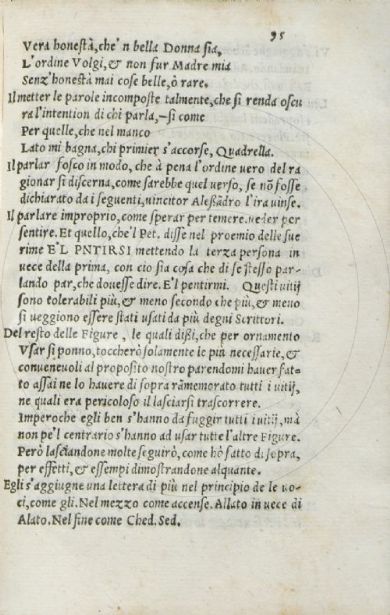 95
Vera honestà, che'n bella Donna sia,
L'ordine Volgi, & non fur Madre mia
Senz'honestà mai cose belle, ò rare.
Il metter le parole incomposte talmente, che si renda oscu
ra l'intention di chi parla, si come
Per quelle, che nel manco
Lato mi bagna, chi primier s'accorse, Quadrella.
Il parlar fosco in modo, che à pena l'ordine vero del ra
gionar si discerna, come sarebbe quel verso, se nõ fosse
dichiarato da i seguenti, vincitor Aleßãdro l'ira vinse.
Il parlare improprio, come sperar per temere. veder per
sentire. Et quello, che'l Pet. disse nel proemio delle sue
rime E'L PNTIRSI mettendo la terza persona in
vece della prima, con cio sia cosa che di se stesso par-
lando par, che douesse dire. E'l pentirmi. Questi uitij
sono tolerabili più, & meno secondo che più, & meno
si ueggiono essere stati usati da più degni Scrittori.
Del resto delle Figure, le quali dißi, che per ornamento
Vsar si ponno, toccherò solamente le più necessarie, &
conueneuoli al proposito nostro parendomi hauer fat-
to assai ne lo hauere di sopra rãmemorato tutti i uitij,
ne quali era pericoloso il lasciarsi trascorrere.
Imperoche egli ben s'hanno da fuggir tutti i uitij, mà
non pe'l centrario s'hanno ad usar tutte l'altre Figure.
Però lasciandone molte seguirò, come hò fatto di sopra,
per effetti, & essempi dimostrandone alquante.
Egli s'aggiugne una lettera di più nel principio de le uo-
ci, come gli. Nel mezzo come accense. Allato in uece di
Alato. Nel fine come Ched. Sed.